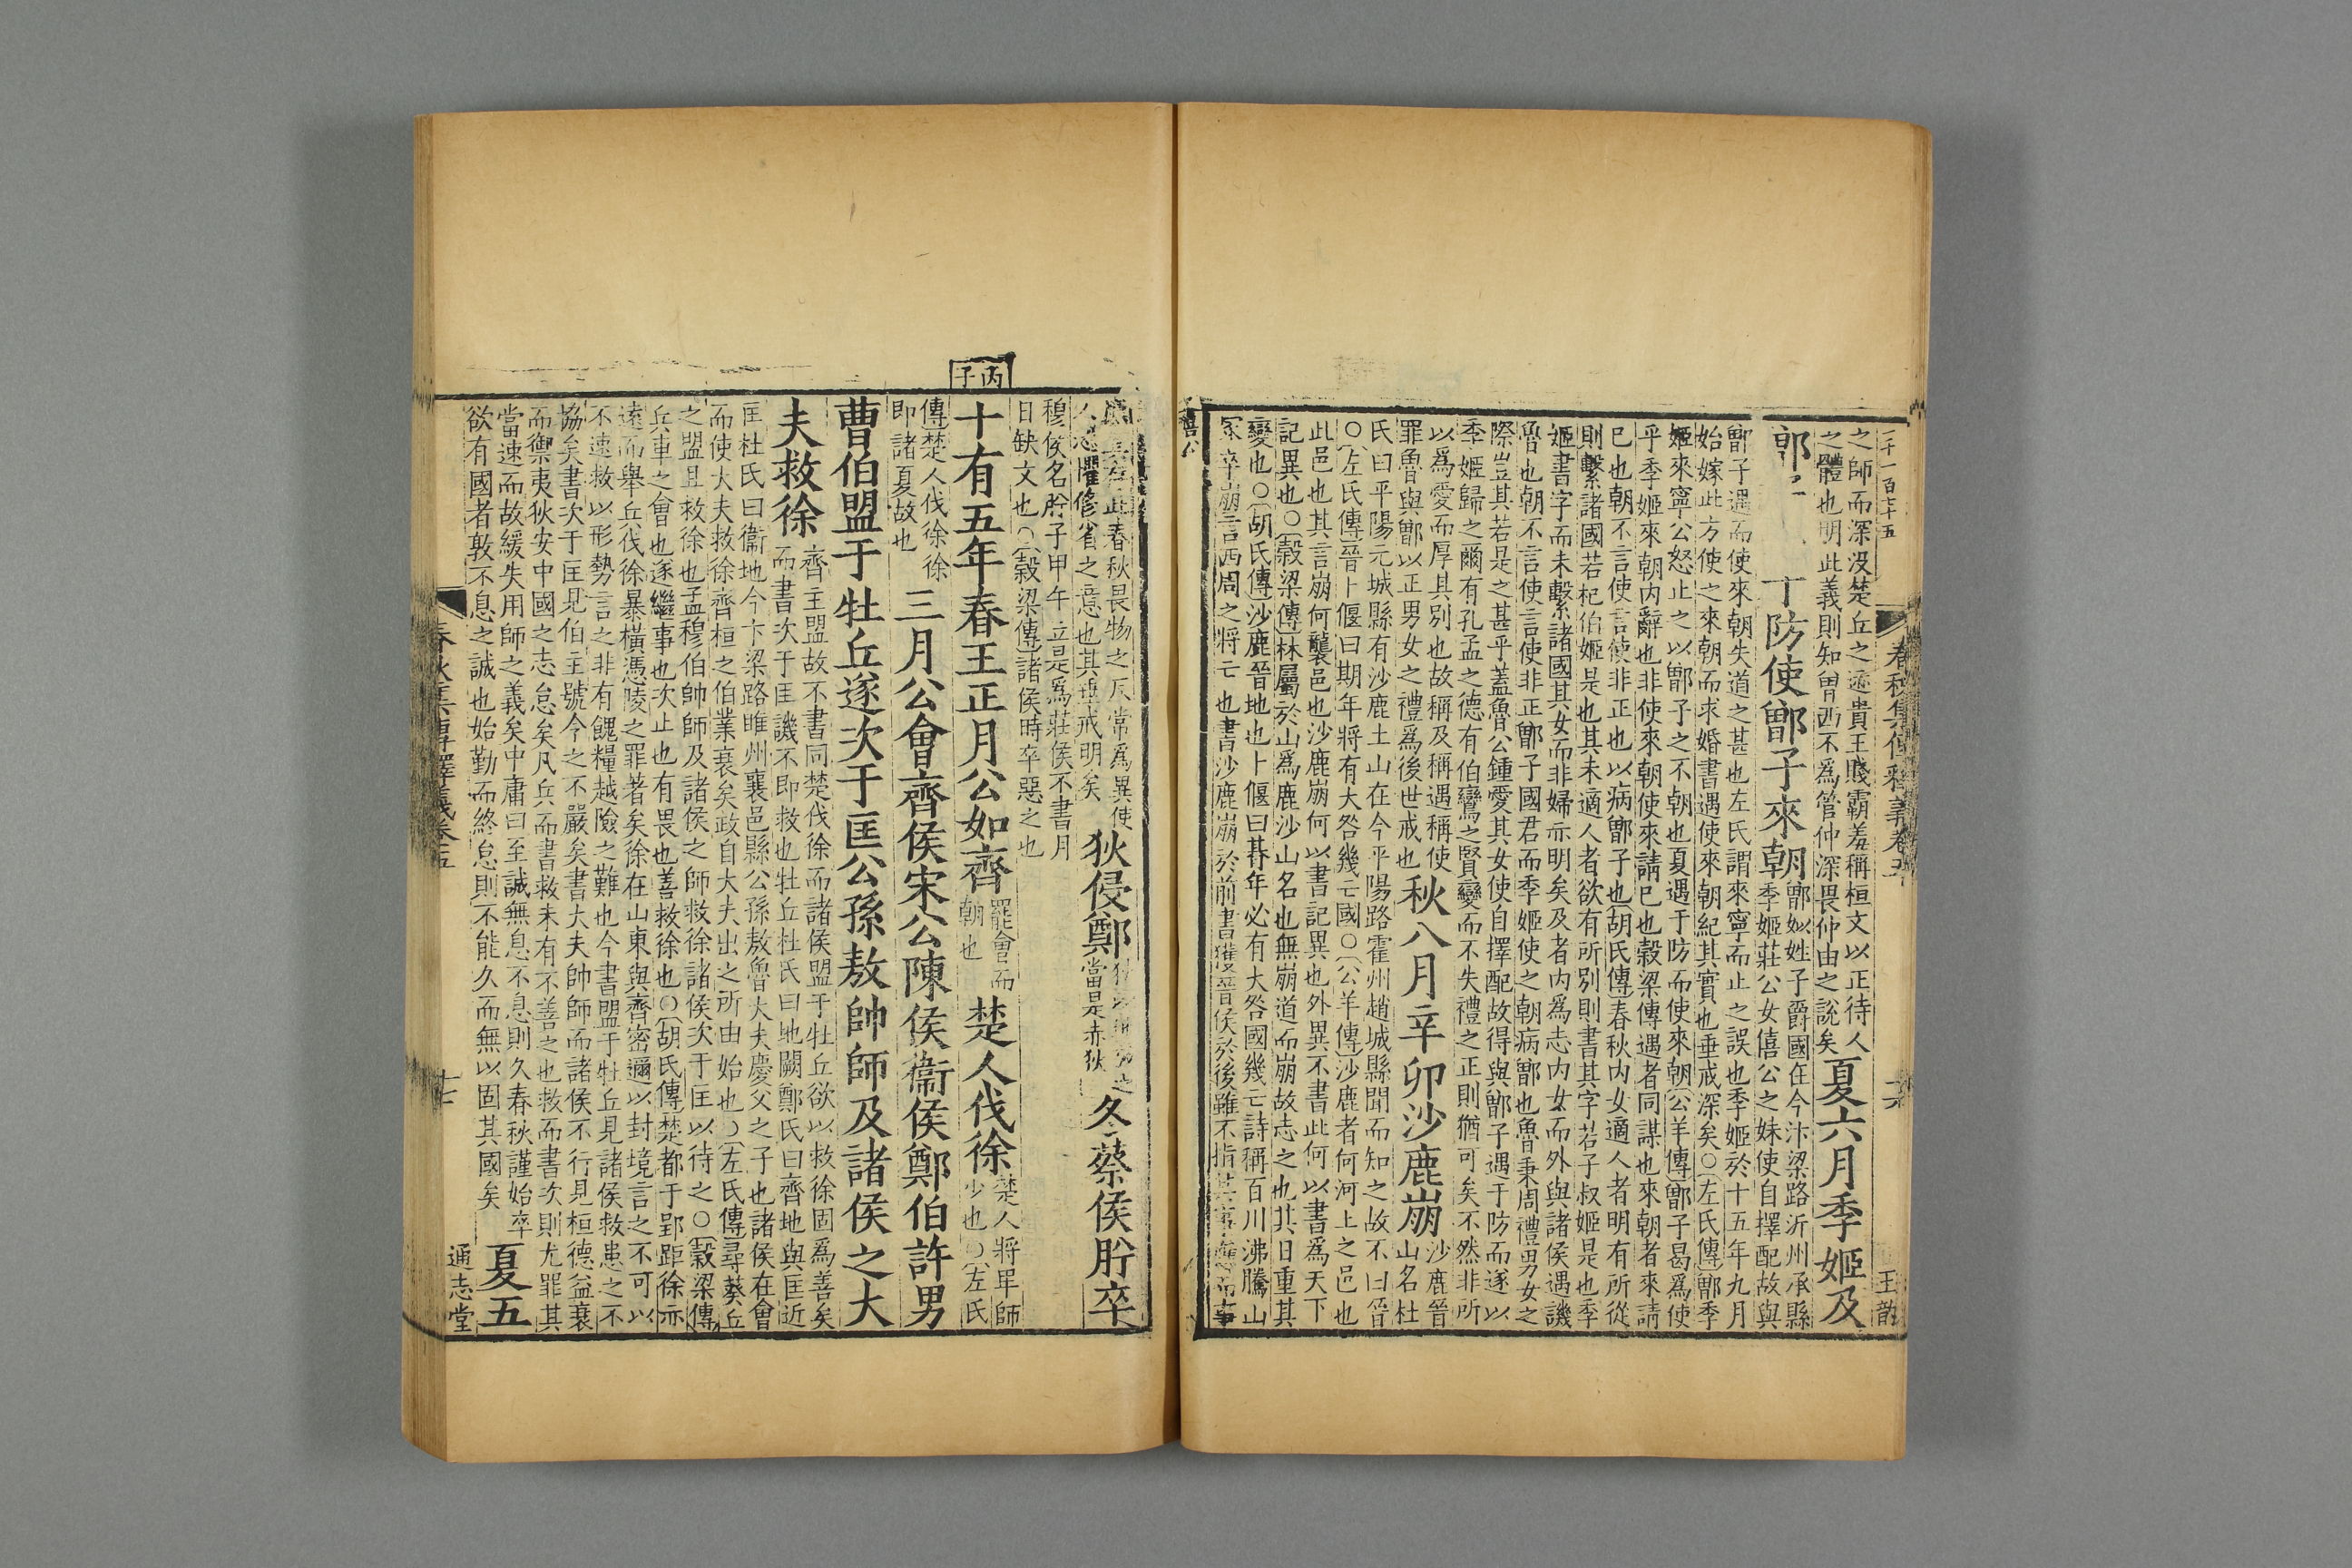 之師而深沒楚丘之迹貴王賤霸羞稱桓文以正待人
之體也明此義則知曾西不爲管仲深畏仲由之說矣
夏六月季姬及
防使鄫子來朝
鄫姒姓子爵國在今汴梁路沂州承縣
季姬莊公女僖公之妹使自擇配故與
鄫子遇而使來朝失道之甚也左氏謂來寧而止之誤也季姬於十五年九月
始嫁此方使之來朝而求婚書遇使來朝紀其實也垂戒深矣○左氏傳鄫季
姬來寧公怒止之以鄫子之不朝也夏遇于防而使來朝公羊傳鄫子曷爲使
乎季姬來朝内辭也非使來朝使來請已也穀梁傳遇者同謀也來朝者來請
已也朝不言使言使非正也以病鄫子也胡氏傳春秋内女適人者明有所從
則繫諸國若杞伯姬是也其未適人者欲有所別則書其字若子叔姬是也季
姬書字而未繫諸國其女而非婦亦明矣及者内爲志内女而外與諸侯遇譏
魯也朝不言使言使非正鄫子國君而季姬使之朝病鄫也魯秉周禮男女之
際豈其若是之甚乎蓋魯公鍾愛其女使自擇配故得與鄫子遇于防而遂以
季姬歸之爾有孔孟之德有伯鸞之賢變而不失禮之正則猶可矣不然非所
以爲愛而厚其別也故稱及稱遇稱使
罪魯與鄫以正男女之禮爲後世戒也
秋八月辛卯沙鹿崩
沙鹿晉
山名杜
氏曰平陽元城縣有沙鹿土山在今平陽路霍州趙城縣聞而知之故不曰晉
○左氏傳晉卜偃曰期年將有大咎幾亡國○公羊傳沙鹿者何河上之邑也
此邑也其言崩何襲邑也沙鹿崩何以書記異也外異不書此何以書爲天下
記異也○穀梁傳林屬於山爲鹿沙山名也無崩道而崩故志之也其日重其
變也○胡氏傳沙鹿晉地也卜偃曰朞年必有大咎國幾亡詩稱百川沸騰山
冢卒崩言西周之將亡也書沙鹿崩於前書獲晉侯於後雖不指其事應而事
春秋畏物之反常爲異使
人恐懼修省之意也其垂戒明矣
狄侵鄭
當是赤狄
冬蔡侯肸卒
穆侯名肸子甲午立是爲莊侯不書月
日缺文也○穀梁傳諸侯時卒惡之也
丙子
十有五年春王正月公如齊
罷會而
朝也
楚人伐徐
楚人將卑師
少也○左氏
傳楚人伐徐徐
即諸夏故也
三月公會齊侯宋公陳侯衞侯鄭伯許男
曹伯盟于牡丘遂次于匡公孫敖帥師及諸侯之大
夫救徐
齊主盟故不書同楚伐徐而諸侯盟于牡丘欲以救徐固爲善矣
而書次于匡譏不即救也牡丘杜氏曰地闕鄭氏曰齊地與匡近
匡杜氏曰衞地今卞梁路睢州襄邑縣公孫敖魯大夫慶父之子也諸侯在會
而使大夫救徐齊桓之伯業衰矣政自大夫出之所由始也○左氏傳尋葵丘
之盟且救徐也孟穆伯帥師及諸侯之師救徐諸侯次于匡以待之○穀梁傳
兵車之會也遂繼事也次止也有畏也善救徐也○胡氏傳楚都于郢距徐亦
遠而舉兵伐徐暴横憑陵之罪著矣徐在山東與齊密邇以封境言之不可以
不速救以形勢言之非有餽糧越險之難也今書盟于牡丘見諸侯救患之不
協矣書次于匡見伯主號令之不嚴矣書大夫帥師而諸侯不行見桓德益衰
而禦夷狄安中國之志怠矣凡兵而書救未有不善之也救而書次則尤罪其
當速而故緩失用師之義矣中庸曰至誠無息不息則久春秋謹始卒
欲有國者敦不息之誠也始勤而終怠則不能久而無以固其國矣
夏五
春秋集傳釋義卷五
十七
通志堂